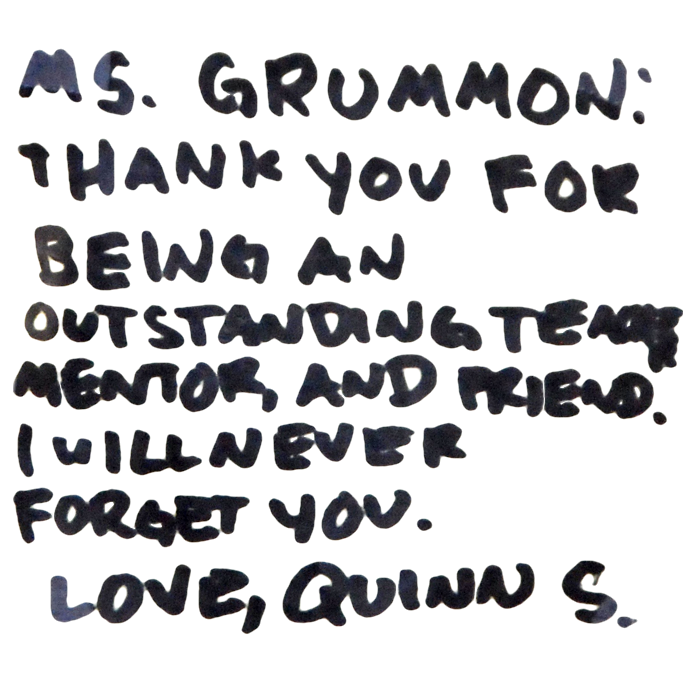 MS. GRUMMON:
THANK YOU FOR
BEING AN
OUTSTANDING
MENTOR, AND FRIEND.
I WILL NEVER
FORGET YOU.
LOVE, QUINN S.